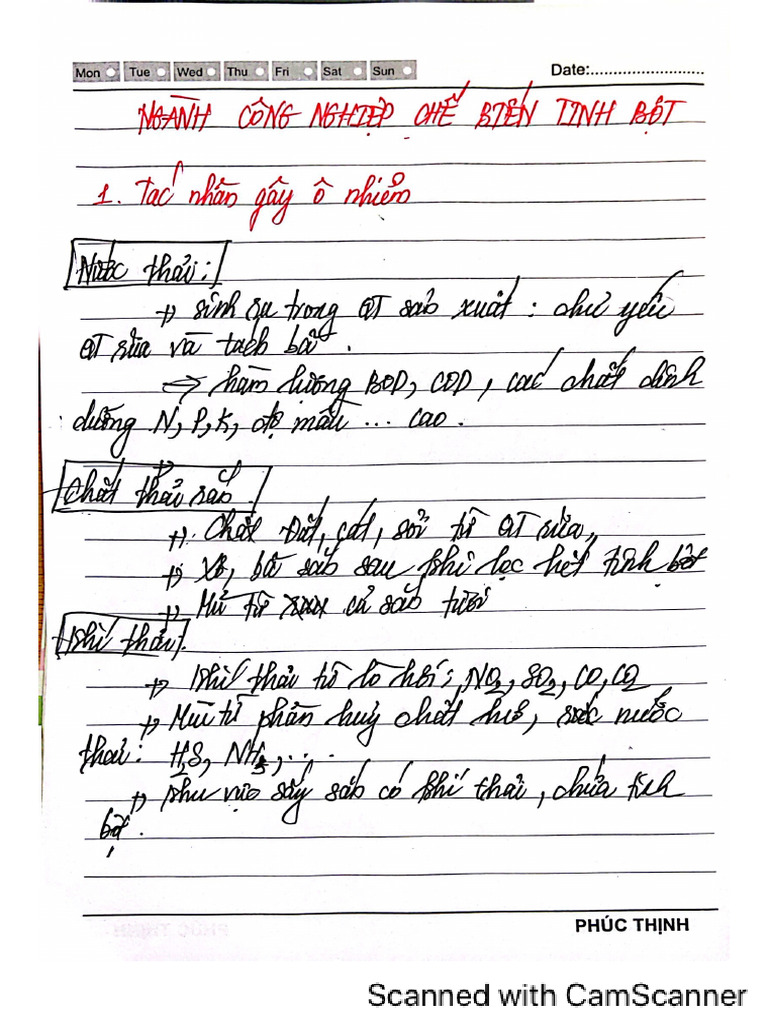 Mon Tue Wed Thu Fri Sat Sun Date:
NGÀNH CÔNG NGHIỆP CHẾ BIẾN TINH BỘT
1. Tác nhân gây ô nhiễm
Nước thải:
+) sinh ra trong QT sản xuất : chủ yếu
QT rửa và tách bã.
<=> hàm lượng BOD, COD, các chất dinh
dưỡng N, P, K, độ màu ... cao.
Chất thải rắn
+) Chất Đất, cát, sỏi từ QT rửa,
+) Xơ, bã sắn sau khi lọc hết tinh bột
+) Mủ từ củ sắn tươi
Khí thải
+) Khí thải từ lò hơi: NO2, SO2, CO, CO2
+) Mùi từ phân huỷ chất hcơ, nước
thải: H2S, NH3, ....
+) khu vực sấy sắn có khí thải, chứa tinh
bột.
PHÚC THỊNH
Scanned with CamScanner